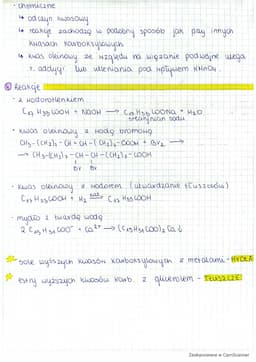 · chemiczne
↳ odczyn kwasowy
↳ reakcje zachodzą w podobny sposób jak przy innych
kwasach karboksylowych
↳ kwas oleinowy ze względu na wiązanie podwójne ulega
r. addycji lub utleniania pod wpływem KMnO₄
Reakcje
· z wodorotlenkiem
C₁₇H₃₅COOH + NaOH → C₁₇H₃₅COONa + H₂O
stearynian sodu
· kwas oleinowy z wodą bromową
CH₃-(CH₂)₇-CH=CH-(CH₂)₇-COOH + Br₂ →
→ CH₃-(CH₂)₇-CH-CH-(CH₂)₇-COOH
Br Br
· kwas oleinowy z wodorem (utwardzanie tłuszczów)
C₁₇H₃₃COOH + H₂ → C₁₇H₃₅COOH
· mydło z twardą wodą
2 C₁₇H₃₅COO⁻ + Ca²⁺ → (C₁₇H₃₅COO)₂Ca↓
sole wyższych kwasów karboksylowych z metalami - MYDŁA
estry wyższych kwasów karb. z glicerolem - TŁUSZCZE
Zeskanowane w CamScanner